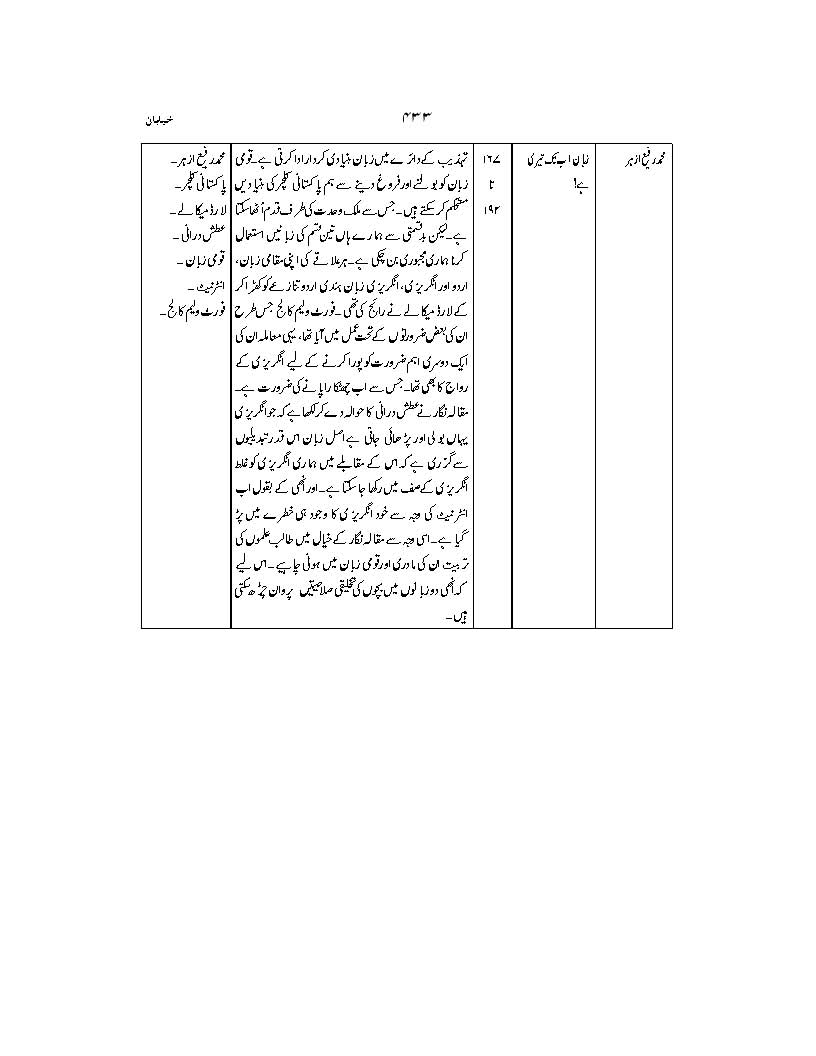 ۴۳۳
خیابان
محمد رفیع ازہر
زبان اب تک تیری
ہے!
۱۶۷
تا
۱۹۲
تہذیب کے دائرے میں زبان بنیادی کردار ادا کرتی ہے۔قومی
زبان کو بولنے اور فروغ دینے سے ہم پاکستانی کلچر کی بنیادیں
مستحکم کرسکتے ہیں۔ جس سے ملک وحدت کی طرف قدم اُٹھا سکتا
ہے۔لیکن بدقسمتی سے ہمارے ہاں تین قسم کی زبانیں استعمال
کرنا ہماری مجبوری بن چکی ہے۔ ہر علاقے کی اپنی مقامی زبان،
اردو اور انگریزی، انگریزی زبان ہندی اردو تنازعے کو کھڑا کر
کے لارڈ میکالے نے رائج کی تھی ۔فورٹ ولیم کالج جس طرح
ان کی بعض ضرورتوں کے تحت عمل میں آیا تھا، یہی معاملہ ان کی
ایک دوسری اہم ضرورت کو پورا کرنے کے لیے انگریزی کے
رواج کا بھی تھا۔ جس سے اب چھٹکارا پانے کی ضرورت ہے۔
مقالہ نگار نے عطش درانی کا حوالہ دے کر لکھا ہے کہ جو انگریزی
یہاں بولی اور پڑھائی جاتی ہے اصل زبان اس قدر تبدیلیوں
سے گزری ہے کہ اس کے مقابلے میں ہماری انگریزی کو غلط
انگریزی کے صف میں رکھا جاسکتا ہے۔ اور اُنھی کے بقول اب
انٹرنیٹ کی وجہ سے خود انگریزی کا وجود ہی خطرے میں پڑ
گیا ہے۔ اسی وجہ سے مقالہ نگار کے خیال میں طالب علموں کی
تربیت ان کی مادری اور قومی زبان میں ہونی چاہیے ۔اس لیے
کہ اُنھی دو زبانوں میں بچوں کی تخلیقی صلاحیتیں پروان چڑھ سکتی
ہیں۔
محمد رفیع ازہر۔
پاکستانی کلچر۔
لارڈ میکالے۔
عطش درانی۔
قومی زبان ۔
انٹرنیٹ ۔
فورٹ ولیم کالج۔